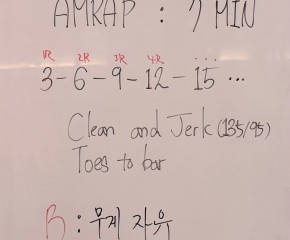 AMRAP : 7 MIN
1R 2R 3R 4R
3-6-9-12-15 ...
Clean and Jerk (135/95)
Toes to bar
B : 무게 자유